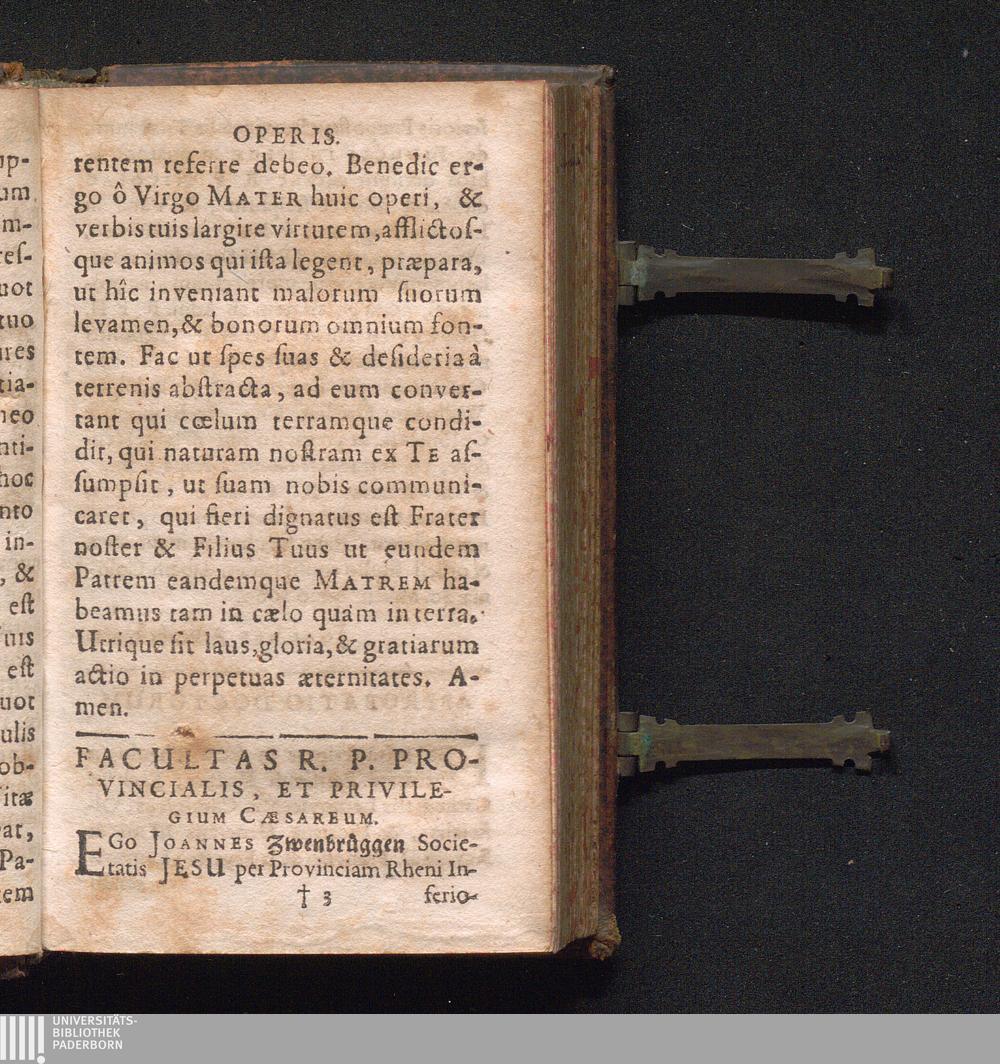 OPERIS.
rentem referre debeo. Benedic er-
go ô Virgo MATER huic operi, &
verbis tuis largire virtutem, afflictoſ-
que animos qui iſta legent, præpara,
ut hîc inveniant malorum ſuorum
levamen, & bonorum omnium fon-
tem. Fac ut ſpes ſuas & deſideria à
terrenis abſtracta, ad eum conver-
tant qui cœlum terramque condi-
dit, qui naturam noſtram ex TE aſ-
ſumpſit, ut ſuam nobis communi-
caret, qui fieri dignatus eſt Frater
noſter & Filius Tuus ut eundem
Patrem eandemque MATREM ha-
beamus tam in cælo quàm in terra.
Utrique ſit laus, gloria, & gratiarum
actio in perpetuas æternitates. A-
men.
FACULTAS R. P. PRO-
VINCIALIS, ET PRIVILE-
GIUM CÆSAREUM.
EGo JOANNES Zwenbrüggen Socie-
tatis JESU per Provinciam Rheni In-
† 3 ferio-
up-
um
m-
reſ-
uot
tuo
ures
tia-
neo
nti-
hoc
nto
in-
, &
eſt
uis
eſt
uot
ulis
ob-
itæ
at,
Pa-
tem
UNIVERSITÄTS-
BIBLIOTHEK
PADERBORN